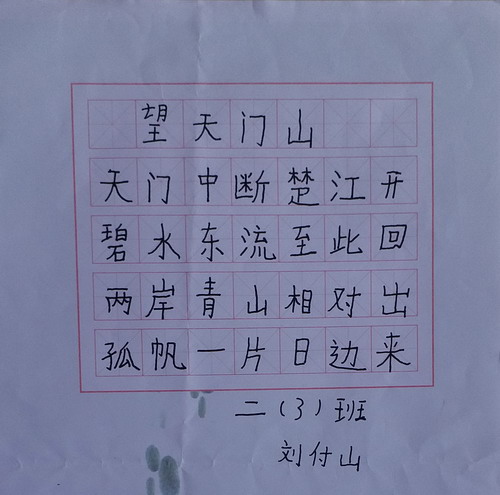 望天门山
天门中断楚江开
碧水东流至此回
两岸青山相对出
孤帆一片日边来
二（3）班
刘付山